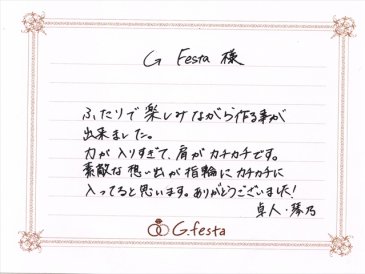 G Festa 様
ふたりで楽しみながら作る事が
出来ました。
力が入りすぎて、肩がカチカチです。
素敵な想い出が指輪にカチカチに
入ってると思います。ありがとうございました!
卓人・琴乃
G.festa